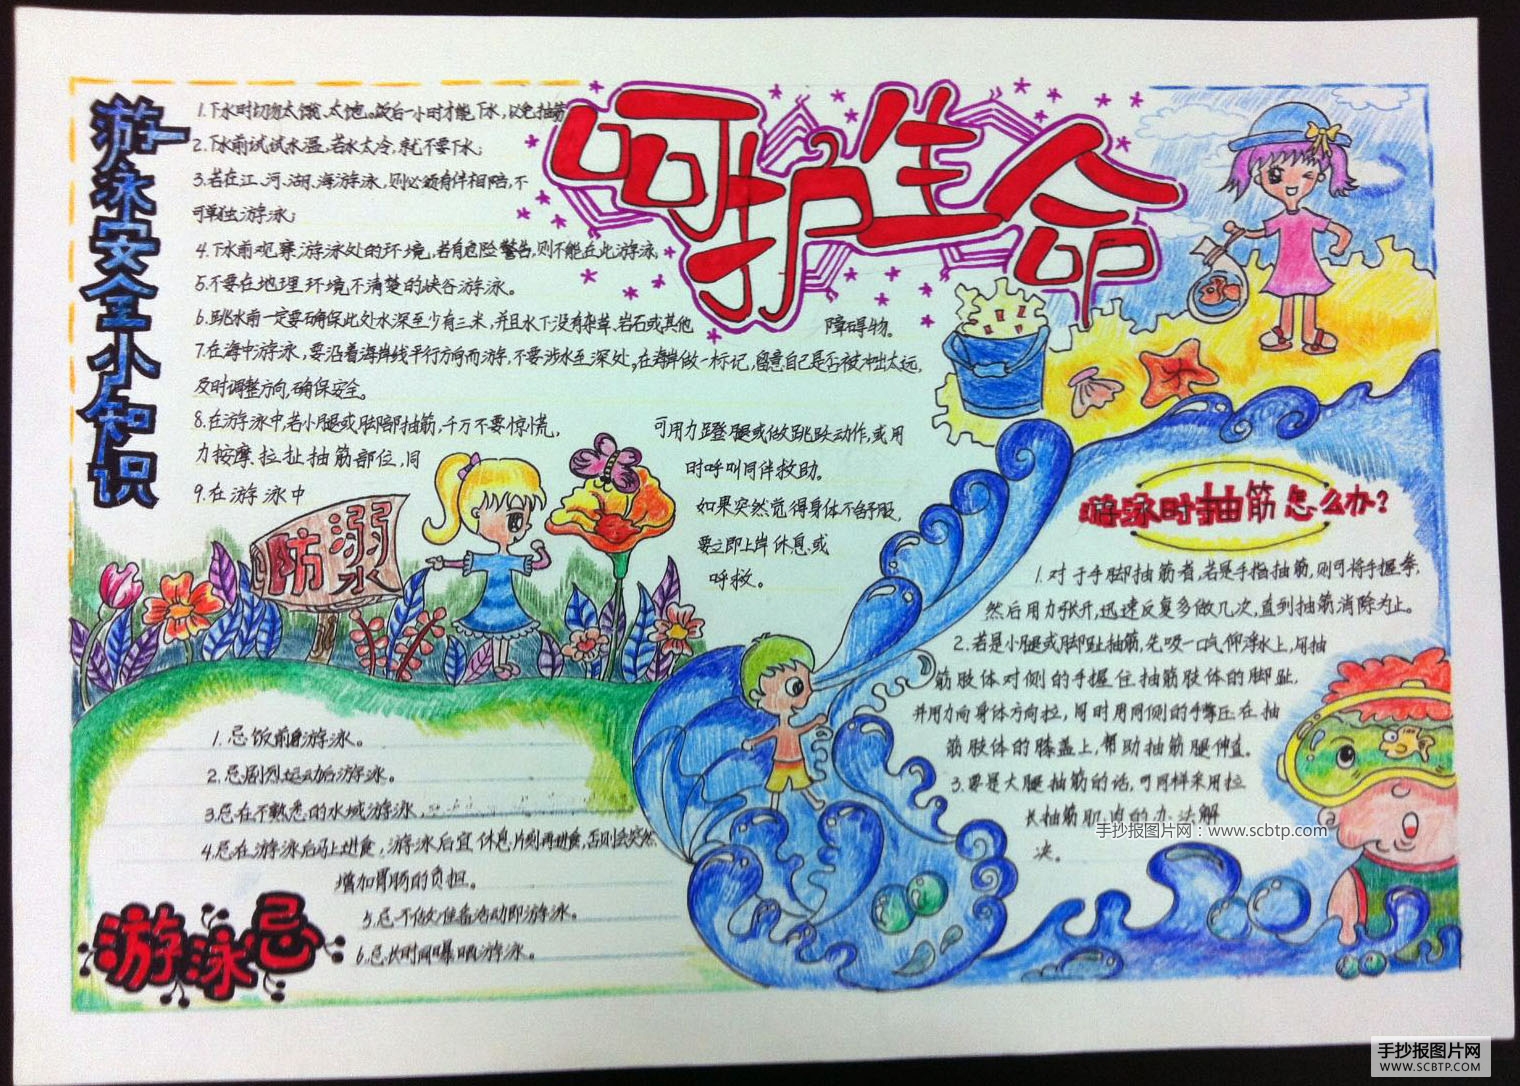 呵护生命
游泳安全小知识
1.下水时切勿太饿、太饱。饭后一小时才能下水,以免抽筋
2.下水前试试水温,若水太冷,就不要下水;
3.若在江、河、湖、海游泳,则必须有伴相陪,不
可单独游泳;
4.下水前观察游泳处的环境,若有危险警告,则不能在此游泳
5.不要在地理环境不清楚的峡谷游泳。
6.跳水前一定要确保此处水深至少有三米,并且水下没有杂草、岩石或其他 障碍物。
7.在海中游泳,要沿着海岸线平行方向而游,不要涉水至深处。在海岸做一标记,留意自己是否被冲出太远,
及时调整方向,确保安全。
8.在游泳中,若小腿或脚部抽筋,千万不要惊慌, 可用力蹬腿或做跳跃动作,或用
力按摩、拉扯抽筋部位,同 时呼叫同伴救助。
9.在游泳中 如果突然觉得身体不舒服,
要立即上岸休息或
呼救。
防溺水
游泳时抽筋怎么办?
1.对于手脚抽筋者,若是手指抽筋,则可将手握拳,
然后用力张开,迅速反复多做几次,直到抽筋消除为止。
2.若是小腿或脚趾抽筋,先吸一口气仰浮水上,用抽
筋肢体对侧的手握住抽筋肢体的脚趾,
并用力向身体方向拉,同时用同侧的手掌压在抽
筋肢体的膝盖上,帮助抽筋腿伸直。
3.要是大腿抽筋的话,可同样采用拉
长抽筋肌肉的办法解
决。
手抄报图片网:www.scbtp.com
游泳忌
1.忌饭前游泳。
2.忌剧烈运动后游泳。
3.忌在不熟悉的水域游泳。
4.忌在游泳后马上进食,游泳后宜休息片刻再进食,否则会突然
增加胃肠的负担。
5.忌不做准备活动即游泳。
6.忌长时间曝晒游泳。
手抄报图片网
WWW.SCBTP.COM